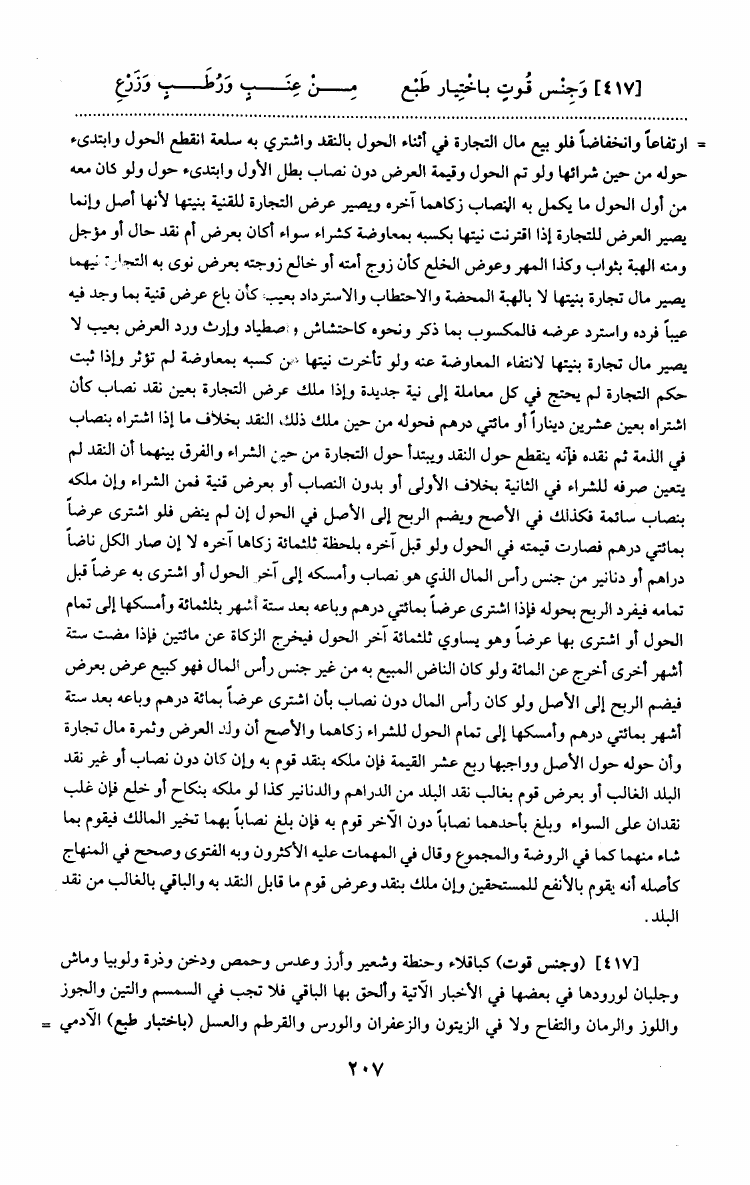 [٤١٧] وَجِنْس قُوتٍ بـاخْتِيار طَبْع مِـــنْ عِنَـــبٍ وَرُطَـــبٍ وَزَرْعِ
= ارتفاعاً وانخفاضاً فلو بيع مال التجارة في أثناء الحول بالنقد واشتري به سلعة انقطع الحول وابتدىء
حوله من حين شرائها ولو تم الحول وقيمة العرض دون نصاب بطل الأول وابتدىء حول ولو كان معه
من أول الحول ما يكمل به النصاب زكاهما آخره ويصير عرض التجارة للقنية بنيتها لأنها أصل وإنما
يصير العرض للتجارة إذا اقترنت نيتها بكسبه بمعاوضة كشراء سواء أكان بعرض أم نقد حال أو مؤجل
ومنه الهبة بثواب وكذا المهر وعوض الخلع كأن زوج أمته أو خالع زوجته بعرض نوى به التجارة فيهما
يصير مال تجارة بنيتها لا بالهبة المحضة والاحتطاب والاسترداد بعيب كأن باع عرض قنية بما وجد فيه
عيباً فرده واسترد عرضه فالمكسوب بما ذكر ونحوه كاحتشاش واصطياد وإرث ورد العرض بعيب لا
يصير مال تجارة بنيتها لانتفاء المعاوضة عنه ولو تأخرت نيتها عن كسبه بمعاوضة لم تؤثر وإذا ثبت
حكم التجارة لم يحتج في كل معاملة إلى نية جديدة وإذا ملك عرض التجارة بعين نقد نصاب كأن
اشتراه بعين عشرين ديناراً أو مائتي درهم فحوله من حين ملك ذلك النقد بخلاف ما إذا اشتراه بنصاب
في الذمة ثم نقده فإنه ينقطع حول النقد ويبتدأ حول التجارة من حين الشراء والفرق بينهما أن النقد لم
يتعين صرفه للشراء في الثانية بخلاف الأولى أو بدون النصاب أو بعرض قنية فمن الشراء وإن ملكه
بنصاب سائمة فكذلك في الأصح ويضم الربح إلى الأصل في الحول إن لم ينض فلو اشترى عرضاً
بمائتي درهم فصارت قيمته في الحول ولو قبل آخره بلحظة ثلثمائة زكاها آخره لا إن صار الكل ناضاً
دراهم أو دنانير من جنس رأس المال الذي هو نصاب وأمسكه إلى آخر الحول أو اشترى به عرضاً قبل
تمامه فيفرد الربح بحوله فإذا اشترى عرضاً بمائتي درهم وباعه بعد ستة أشهر بثلثمائة وأمسكها إلى تمام
الحول أو اشترى بها عرضاً وهو يساوي ثلثمائة آخر الحول فيخرج الزكاة عن مائتين فإذا مضت ستة
أشهر أخرى أخرج عن المائة ولو كان الناض المبيع به من غير جنس رأس المال فهو كبيع عرض بعرض
فيضم الربح إلى الأصل ولو كان رأس المال دون نصاب بأن اشترى عرضاً بمائة درهم وباعه بعد ستة
أشهر بمائتي درهم وأمسكها إلى تمام الحول للشراء زكاهما والأصح أن ولد العرض وثمرة مال تجارة
وأن حوله حول الأصل وواجبها ربع عشر القيمة فإن ملكه بنقد قوم به وإن كان دون نصاب أو غير نقد
البلد الغالب أو بعرض قوم بغالب نقد البلد من الدراهم والدنانير كذا لو ملكه بنكاح أو خلع فإن غلب
نقدان على السواء وبلغ بأحدهما نصاباً دون الآخر قوم به فإن بلغ نصاباً بهما تخير المالك فيقوم بما
شاء منهما كما في الروضة والمجموع وقال في المهمات عليه الأكثرون وبه الفتوى وصحح في المنهاج
كأصله أنه يقوم بالأنفع للمستحقين وإن ملك بنقد وعرض قوم ما قابل النقد به والباقي بالغالب من نقد
البلد .
[٤١٧] (وجنس قوت) كباقلاء وحنطة وشعير وأرز وعدس وحمص ودخن وذرة ولوبيا وماش
وجلبان لورودها في بعضها في الأخبار الآتية وألحق بها الباقي فلا تجب في السمسم والتين والجوز
واللوز والرمان والتفاح ولا في الزيتون والزعفران والورس والقرطم والعسل (باختيار طبع) الآدمي =
٢٠٧